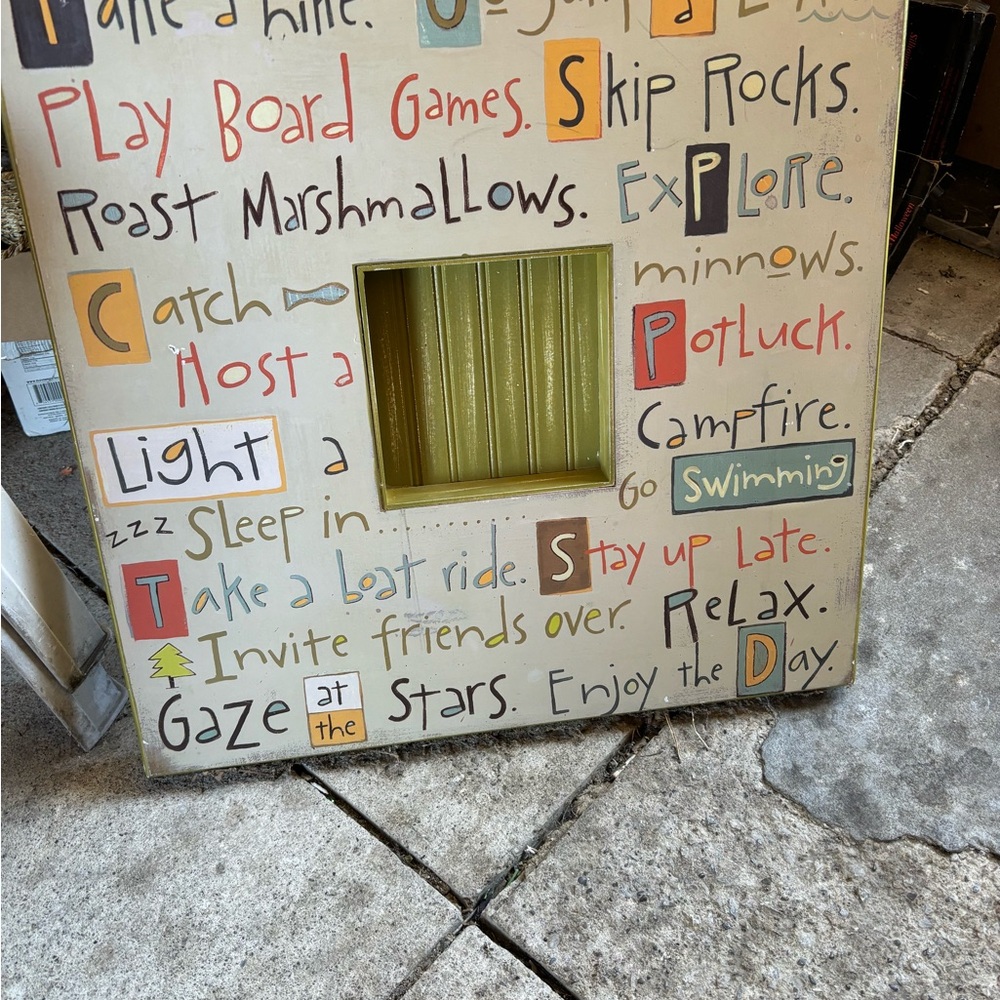 Take a hike. Go jump
PLay Board Games. Skip Rocks.
Roast MarshmaLLows. ExPLoRe.
Catch minnows.
Host a PotLuck.
Light a Campfire.
Go Swimming
zzz SLeep in..............
Take a boat ride. Stay up Late.
Invite friends over. ReLax.
Gaze at the Stars. Enjoy the Day.
Halloween